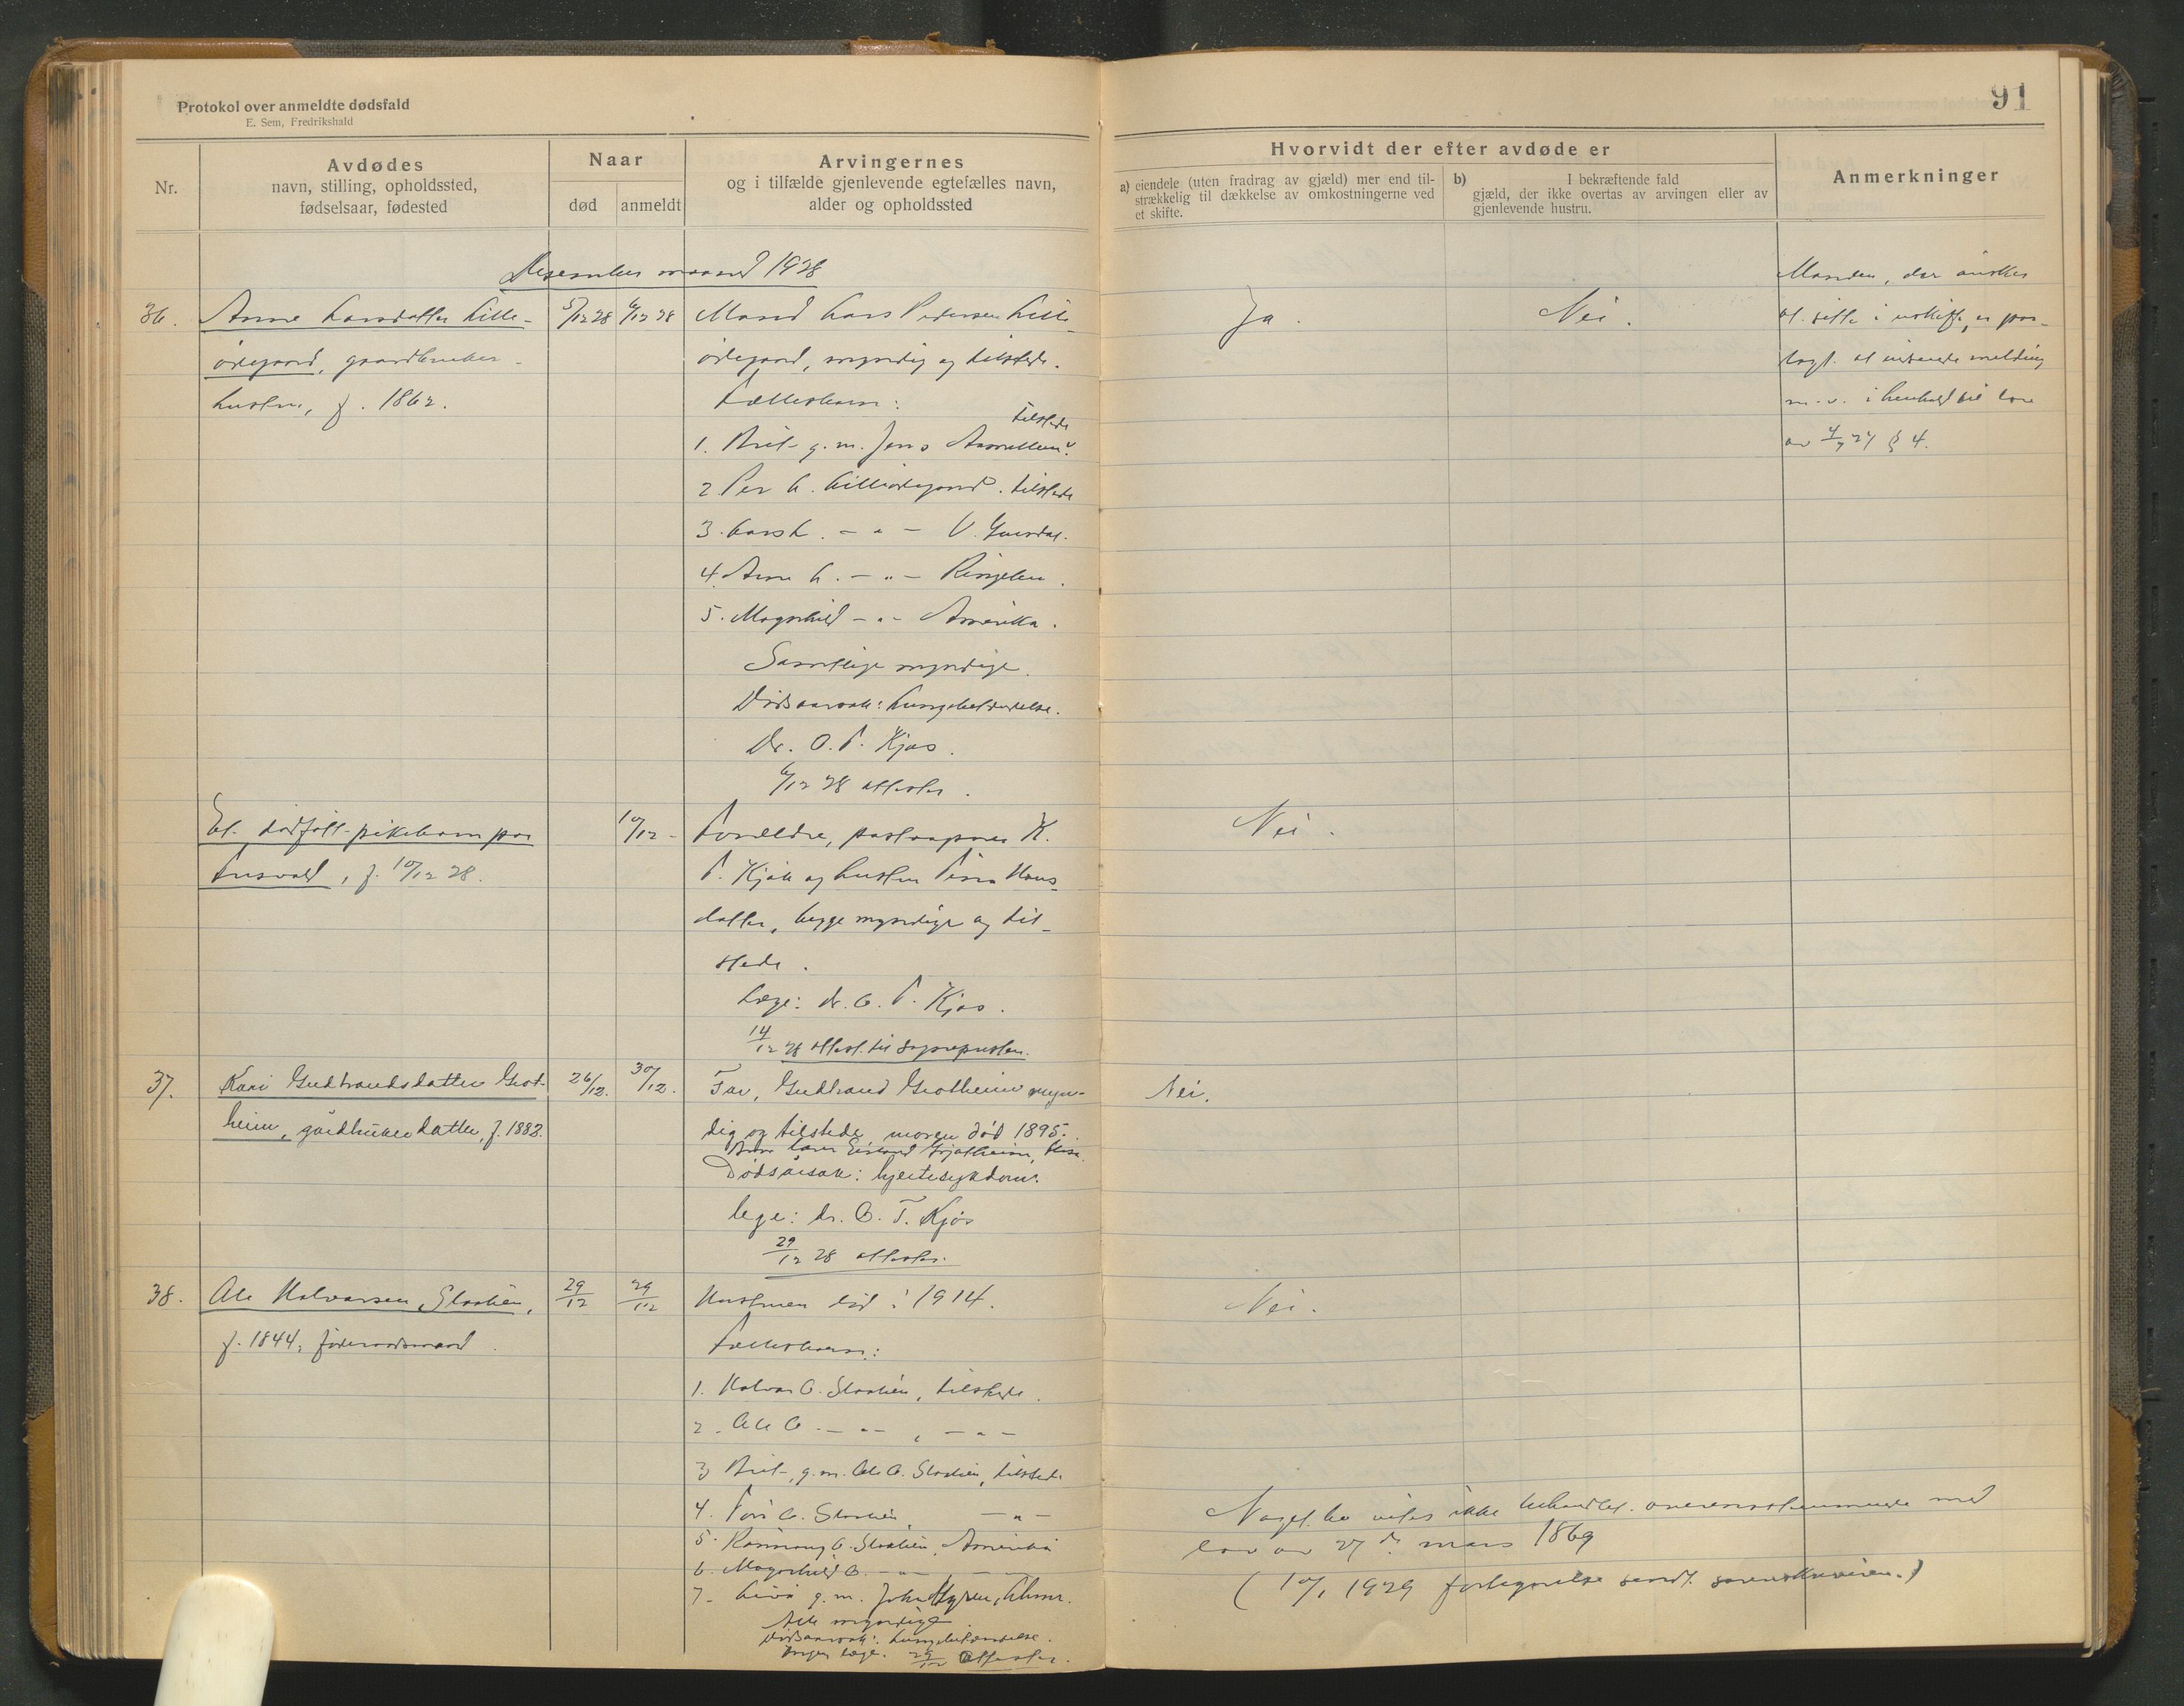 Protokol over anmeldte dødsfald
E. Sem, Fredrikshald
91
Nr.
Avdødes
navn, stilling, opholdssted,
fødselsaar, fødested
Naar
død
anmeldt
Arvingernes
og i tilfælde gjenlevende egtefælles navn,
alder og opholdssted
Hvorvidt der efter avdøde er
a) eiendele (uten fradrag av gjæld) mer end til-
strækkelig til dækkelse av omkostningerne ved
et skifte.
b) I bekræftende fald
gjæld, der ikke overtas av arvingen eller av
gjenlevende hustru.
Anmerkninger
Desember maaned 1928
36.
Anne Larsdatter Lille-
ødegaard, gaardbruker-
hustru, f. 1862.
5/12 28
6/12 28
Mand Lars Pedersen Lille-
ødegaard, myndig og tilstede.
Fællesbarn:
1. Brit g. m. Jens tilstede
2. Per L. Lilleødegaard. tilstede
3. Lars L. - " - V. Gausdal.
4. Anne L. - " - Ringebu.
5. Magnhild - " - Amerika.
Samtlige myndige.
Dødsaarsak: Lungebetændelse.
Dr. O. T. Kjøs.
6/12 28 attester.
Ja.
Nei.
Manden, der ønsker
at sitte i uskifte, er paa-
lagt at indsende melding
m. v. i henhold til lov
av 4/7 27 § 4.
Et dødfødt pikebarn paa
Furuvold, f. 10/12 28.
10/12 -
Forældre, K.
T. og hustru Hans-
datter, begge myndige og til-
stede.
Læge: dr. O. T. Kjøs.
14/12 28 attest til sognepresten.
Nei.
37.
Kari Gudbrandsdatter Grot-
heim, gårdbrukerdatter, f. 1882.
26/12.
30/12.
Far, Gudbrand Grotheim myn-
dig og tilstede, moren død 1895.
Dødsårsak: hjertesykdom.
lege: dr. O. T. Kjøs
29/12 28 attester.
Nei.
38.
Ole Halvorsen Slaalien,
f. 1844, føderaadsmand.
29/12
29/12
Hustruen død i 1914.
Fællesbarn:
1. Halvor O. Slaalien, tilstede.
2. Ole O. - " - , - " -
3. Brit, g. m. Ole O. Slaalien, tilstede
4. Tori O. Slaalien, - " -
5. O. Slaalien, Amerika
6. Magnhild O. - " - -
7. g. m. John
Alle myndige
Dødsaarsak: Lungebetændelse.
Ingen læge. 29/12 Attester.
Nei.
Noget bo vites ikke behandlet overensstemmende med
lov av 27de mars 1869
(10/1 1929 fortegnelse sendt sorenskriveren.)